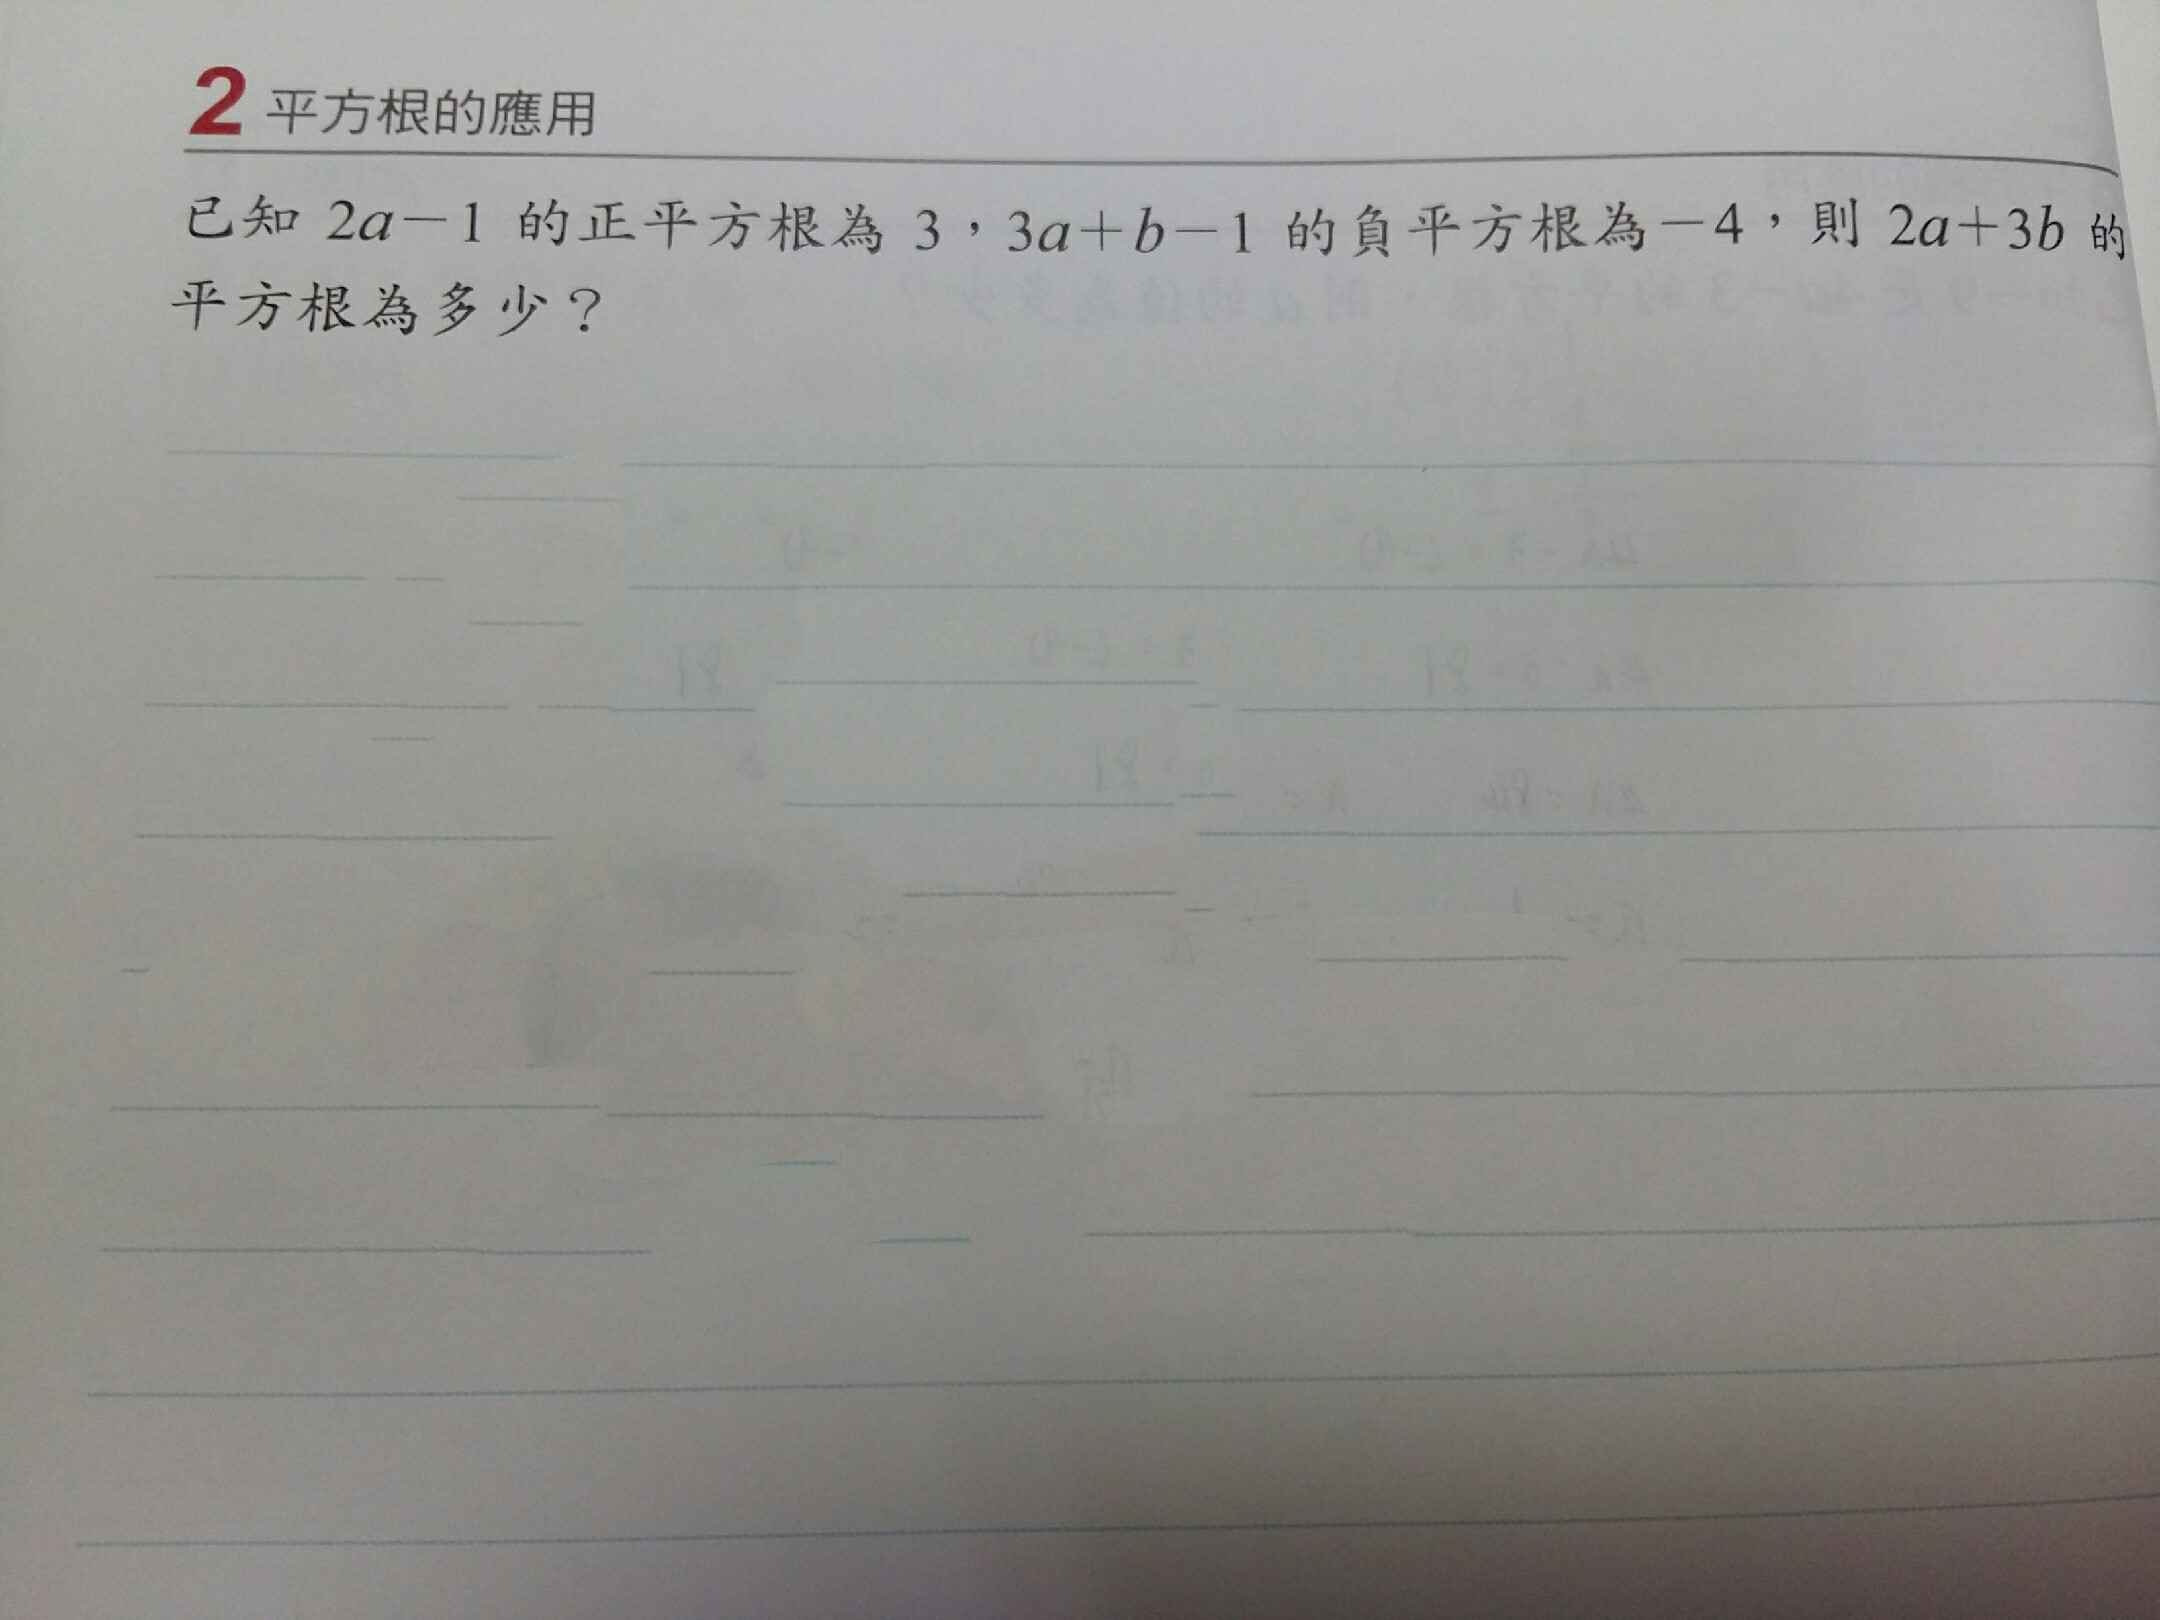 2 平方根的應用
已知 2a－1 的正平方根為 3，3a＋b－1 的負平方根為－4，則 2a＋3b 的
平方根為多少？